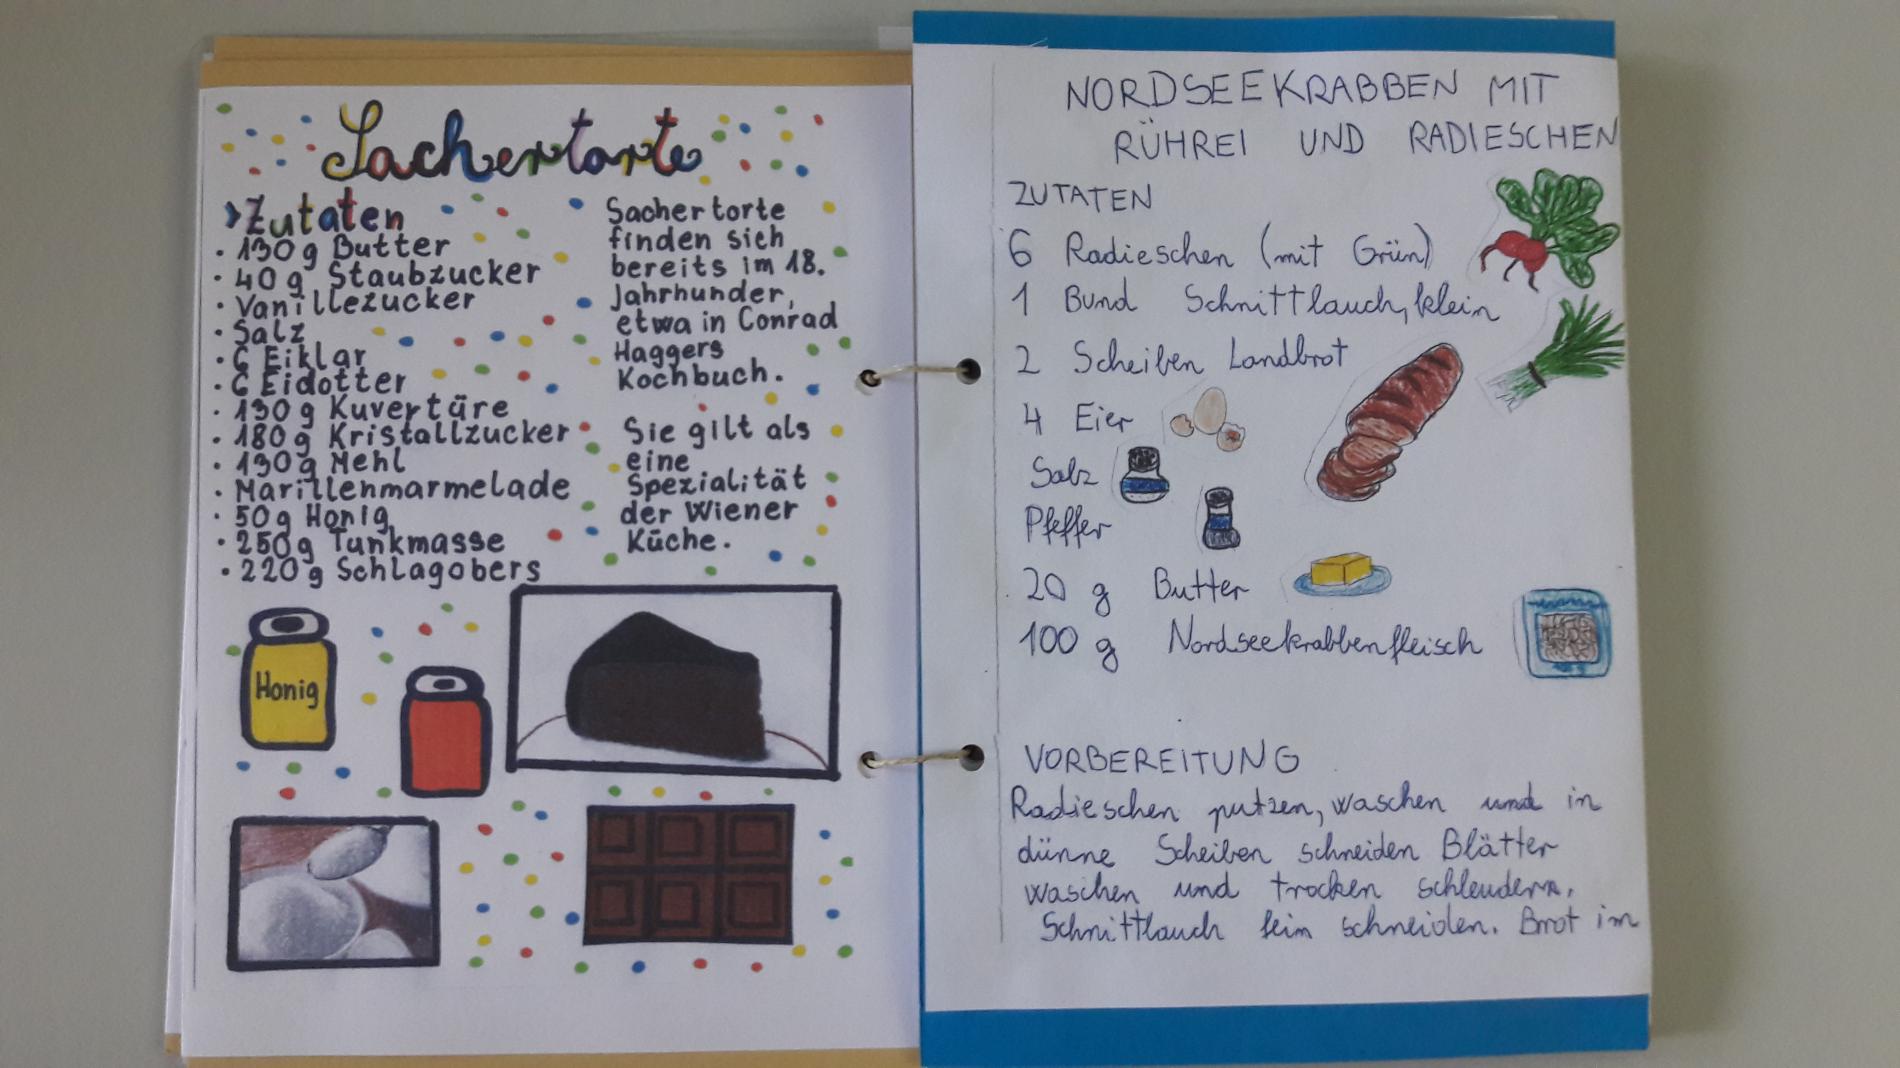 Sachertorte
Zutaten
· 130g Butter
· 40g Staubzucker
· Vanillezucker
· Salz
· 6 Eiklar
· 6 Eidotter
· 130g Kuvertüre
· 180g Kristallzucker
· 130g Mehl
· Marillenmarmelade
· 50g Honig
· 250g Tunkmasse
· 220g Schlagobers
Sachertorte
finden sich
bereits im 18.
Jahrhunder,
etwa in Conrad
Haggers
Kochbuch.
Sie gilt als
eine
Spezialität
der Wiener
Küche.
Honig
NORDSEEKRABBEN MIT
RÜHREI UND RADIESCHEN
ZUTATEN
6 Radieschen (mit Grün)
1 Bund Schnittlauch, klein
2 Scheiben Landbrot
4 Eier
Salz
Pfeffer
20 g Butter
100 g Nordseekrabbenfleisch
VORBEREITUNG
Radieschen putzen, waschen und in
dünne Scheiben schneiden Blätter
waschen und trocken schleudern.
Schnittlauch fein schneiden. Brot im